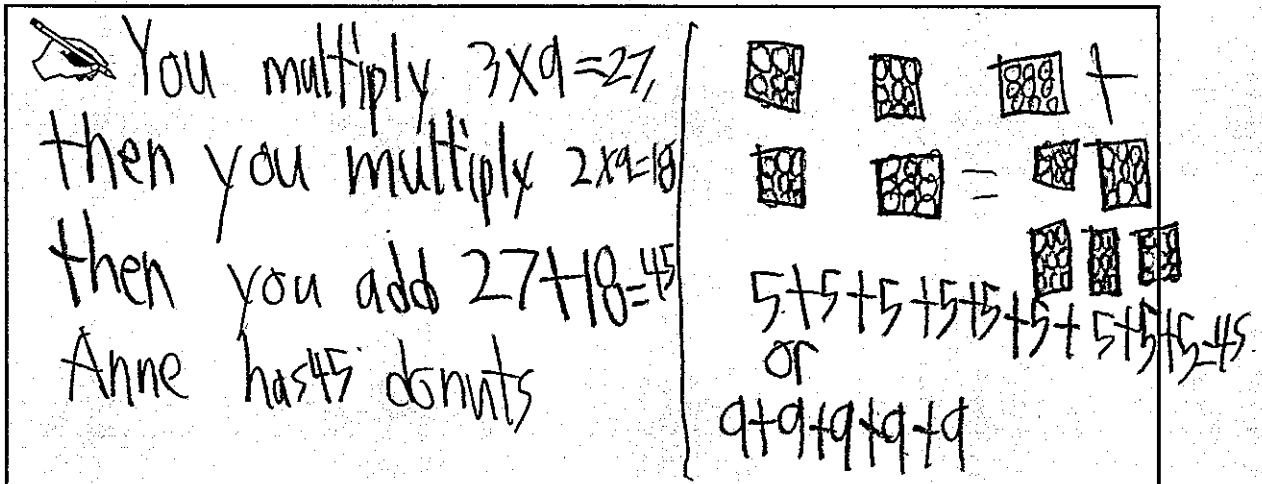 You multiply 3x9=27,
then you multiply 2x9=18
then you add 27+18=45
Anne has 45 donuts
+
=
5+5+5+5+5+5+5+5+5=45
or
9+9+9+9+9